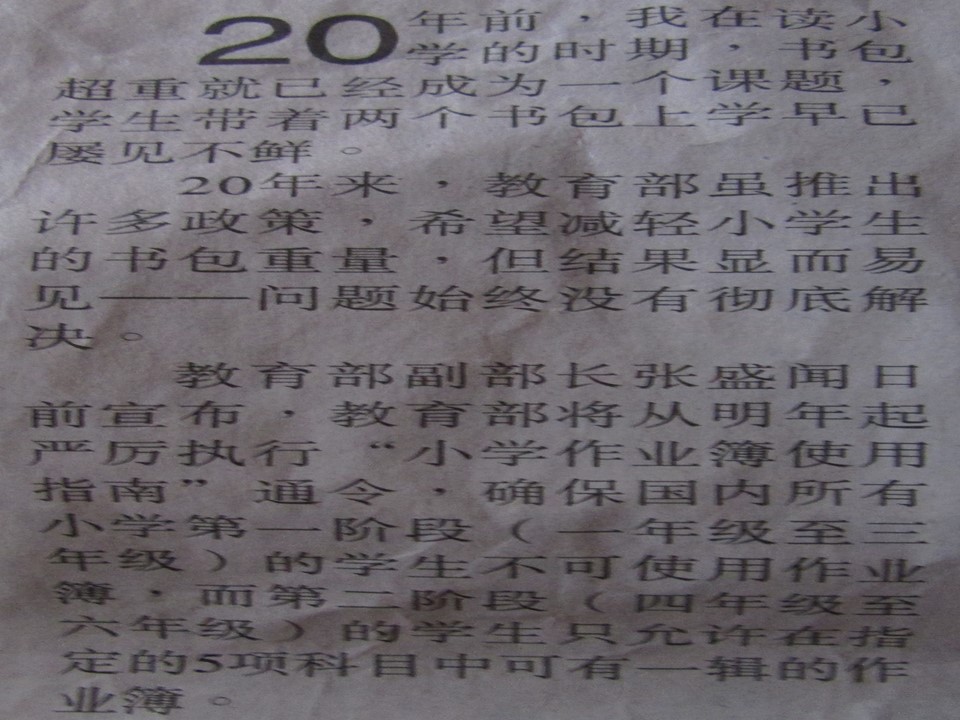 20年前，我在读小
学的时期，书包
超重就已经成为一个课题，
学生带着两个书包上学早已
屡见不鲜。
20年来，教育部虽推出
许多政策，希望减轻小学生
的书包重量，但结果显而易
见——问题始终没有彻底解
决。
教育部副部长张盛闻日
前宣布，教育部将从明年起
严厉执行“小学作业簿使用
指南”通令，确保国内所有
小学第一阶段（一年级至三
年级）的学生不可使用作业
簿，而第二阶段（四年级至
六年级）的学生只允许在指
定的5项科目中可有一辑的作
业簿。